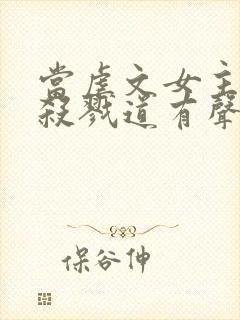 當虐文女主
殺戮道有聲
保谷伸